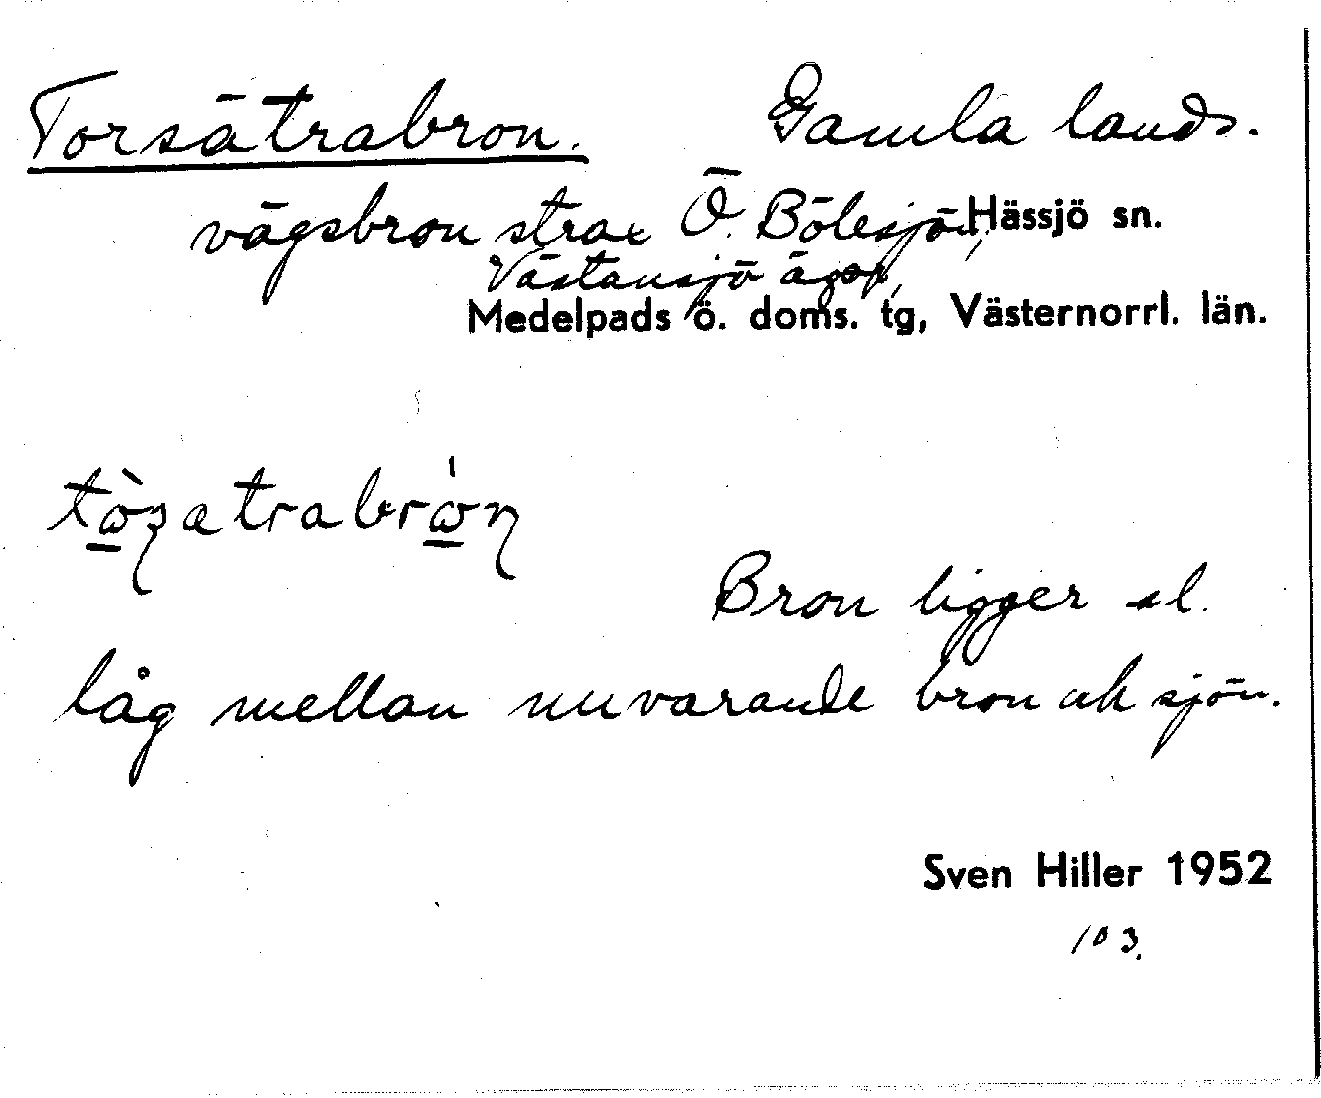 Torsätrabron. Gamla lands-
vägsbron strax Ö. Bölesjön, Hässjö sn.
Västansjö ägor,
Medelpads ö. doms. tg, Västernorrl. län.
Bron ligger sl.
låg mellan nuvarande bron och sjön.
Sven Hiller 1952
103.